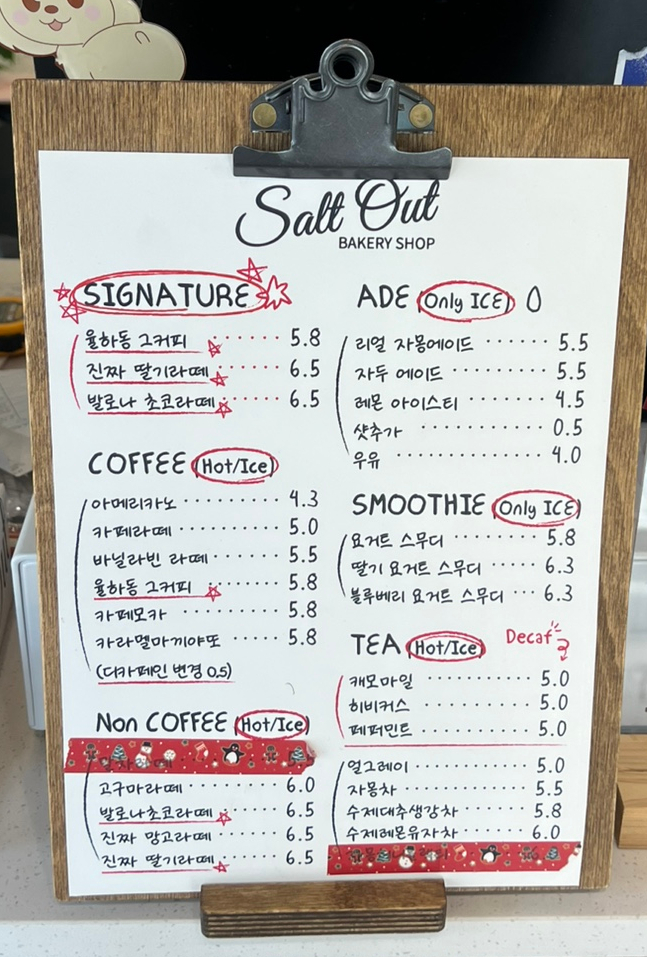 Salt Out
BAKERY SHOP
SIGNATURE
율하동 그커피 ······ 5.8
진짜 딸기라떼 ······ 6.5
발로나 초코라떼 ······ 6.5
COFFEE (Hot/Ice)
아메리카노 ········· 4.3
카페라떼 ········· 5.0
바닐라빈 라떼 ······ 5.5
율하동 그커피 ······ 5.8
카페모카 ········· 5.8
카라멜마끼야또 ····· 5.8
(디카페인 변경 0.5)
Non COFFEE (Hot/Ice)
고구마라떼 ······· 6.0
발로나초코라떼 ······ 6.5
진짜 망고라떼 ······ 6.5
진짜 딸기라떼 ······ 6.5
ADE (Only ICE)
리얼 자몽에이드 ······ 5.5
자두 에이드 ········ 5.5
레몬 아이스티 ······· 4.5
샷추가 ·········· 0.5
우유 ············ 4.0
SMOOTHIE (Only ICE)
요거트 스무디 ······· 5.8
딸기 요거트 스무디 ····· 6.3
블루베리 요거트 스무디 ··· 6.3
TEA (Hot/Ice) Decaf
캐모마일 ·········· 5.0
히비커스 ·········· 5.0
페퍼민트 ·········· 5.0
얼그레이 ·········· 5.0
자몽차 ··········· 5.5
수제대추생강차 ······ 5.8
수제레몬유자차 ······ 6.0